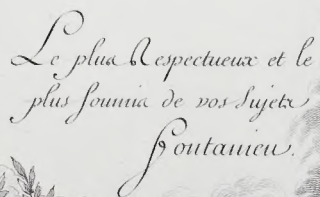 Le plus Respectueux et le
plus soumis de vos sujets
Fontanieu.